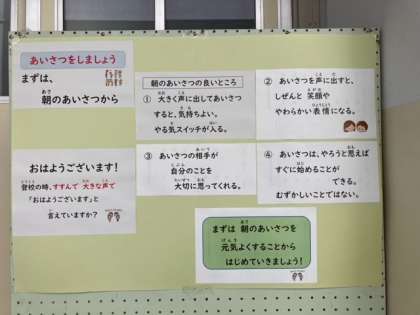 あいさつをしましょう
まずは、
朝のあいさつから
おはようございます！
登校の時、すすんで 大きな声で
「おはようございます」と
言えていますか？
朝のあいさつの良いところ
① 大きく声に出してあいさつ
すると、気持ちよい。
やる気スイッチが入る。
② あいさつを声に出すと、
しぜんと 笑顔や
やわらかい表情になる。
③ あいさつの相手が
自分のことを
大切に思ってくれる。
④ あいさつは、やろうと思えば
すぐに始めることが
できる。
むずかしいことではない。
まずは 朝のあいさつを
元気よくすることから
はじめていきましょう！